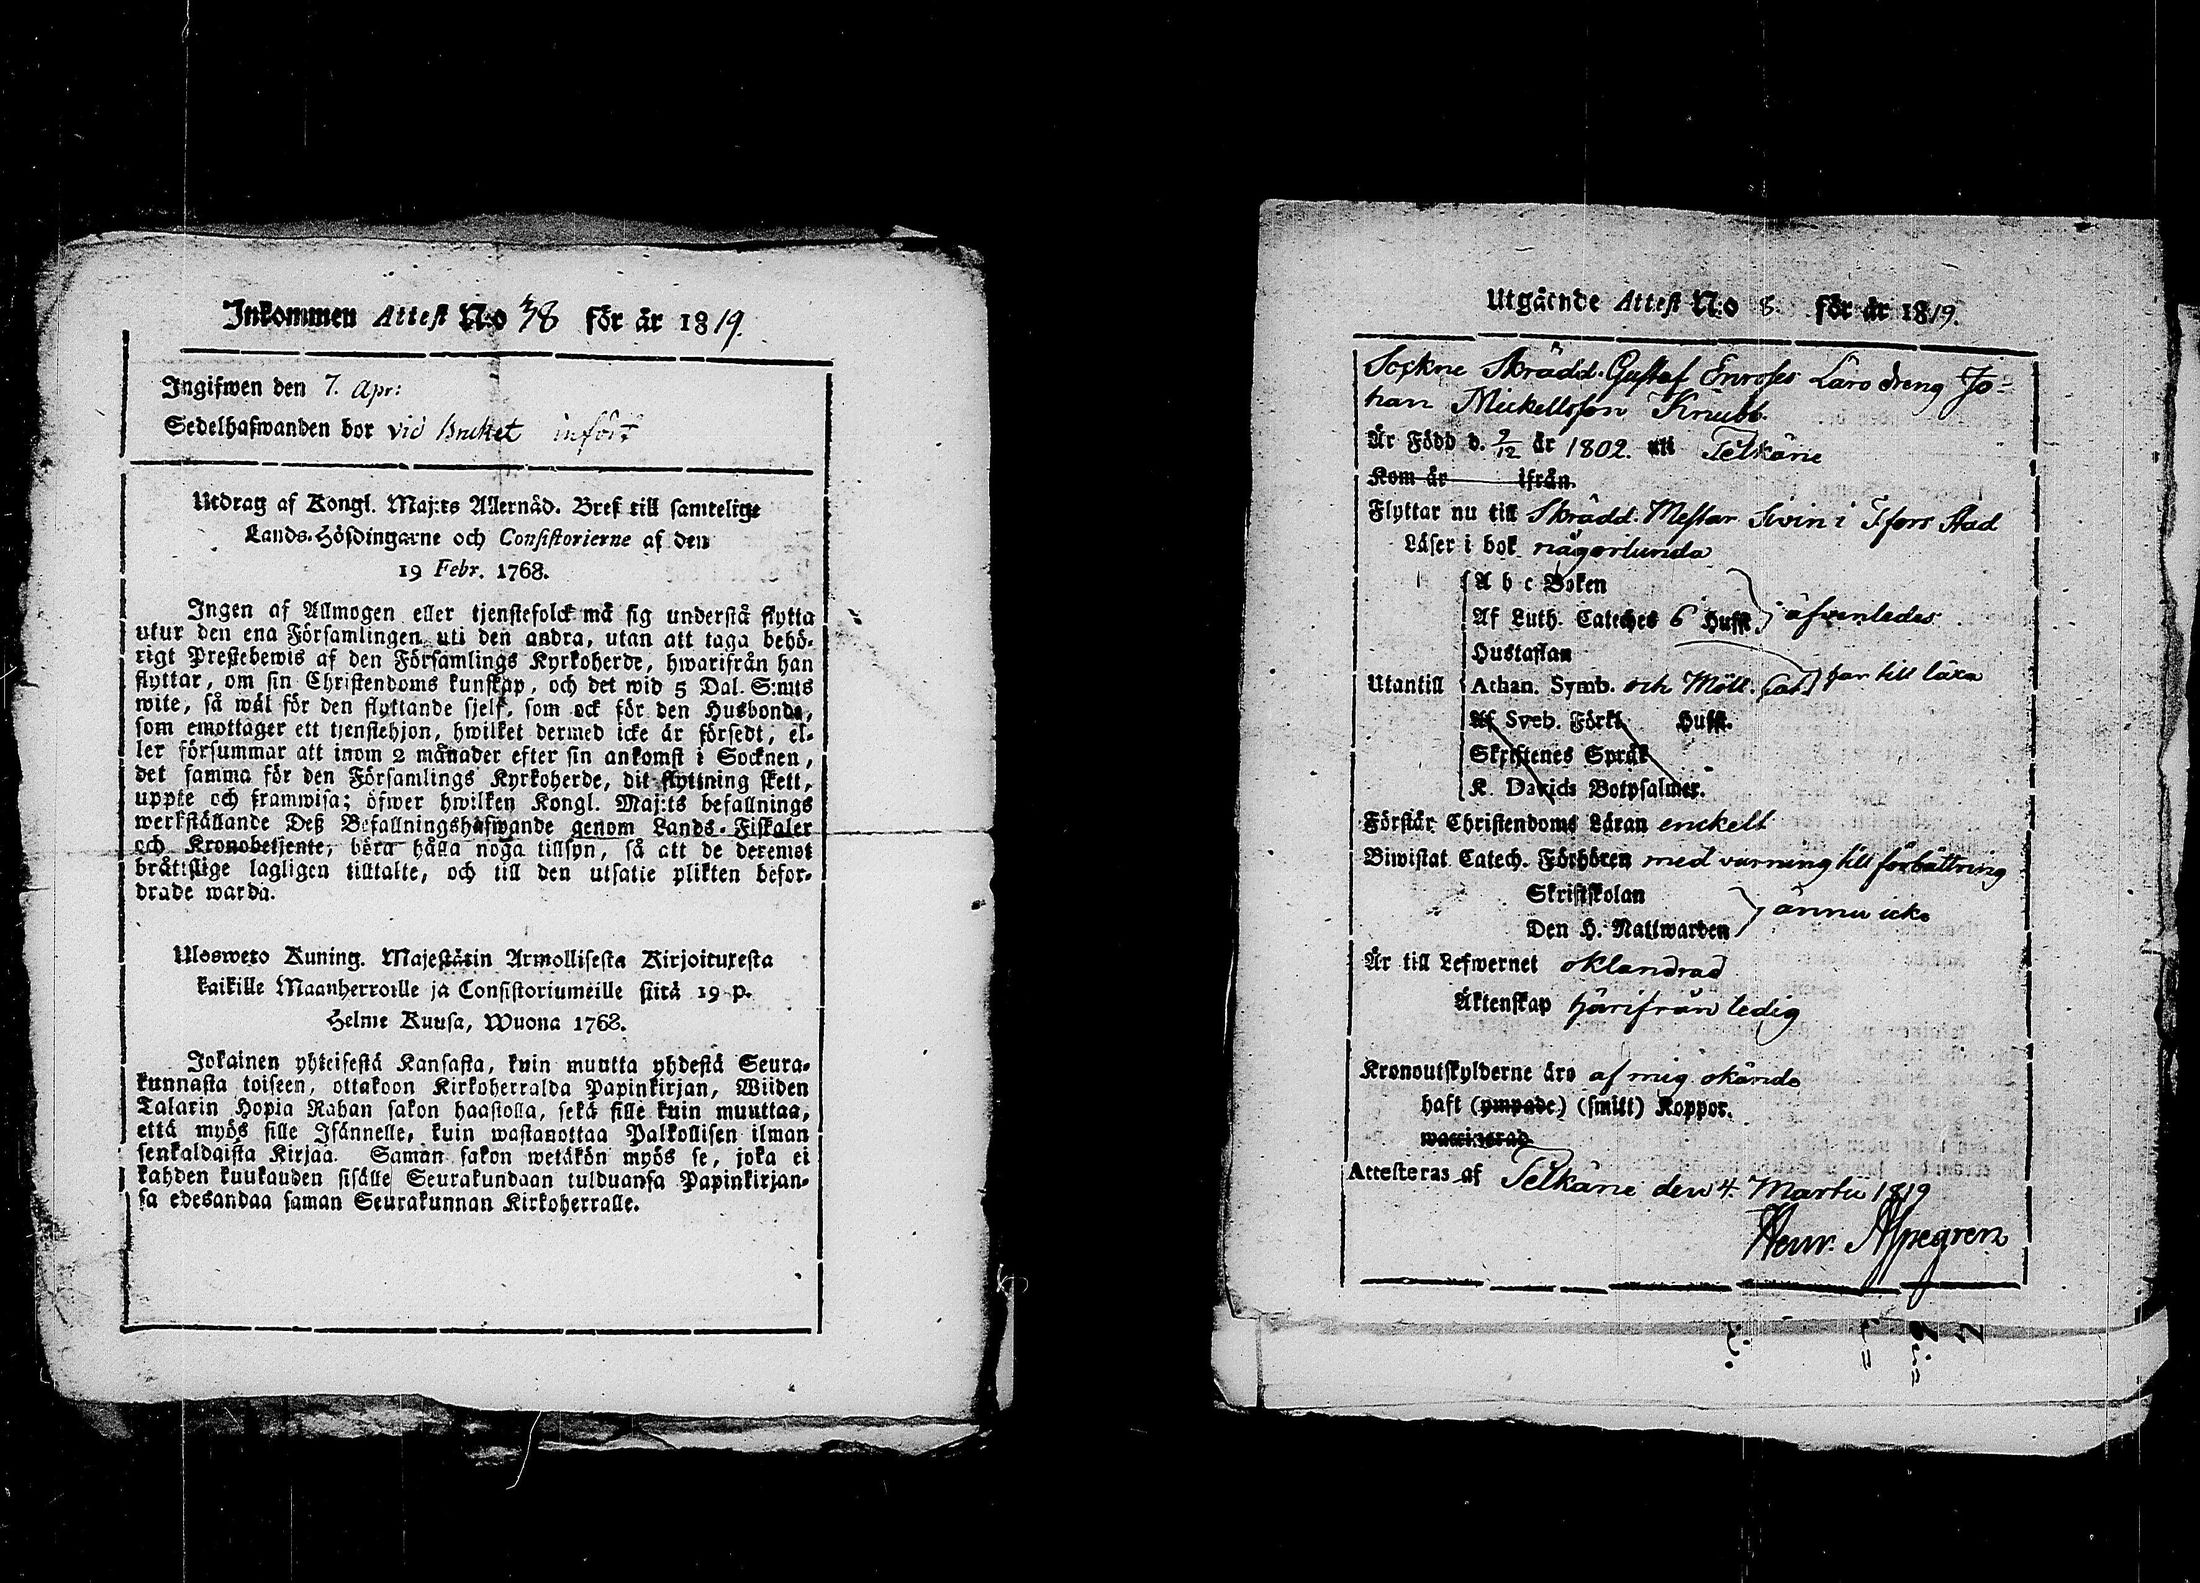 Inkommen Attest N:o 38 för år 1819.
Ingifwen den 7. Apr:
Sedelhafwanden bor vid Bruket infört
Utdrag af Kongl. Maj:ts Allernåd. Bref till samtelige
Lands-Höfdingarne och Consistorierne af den
19 Febr. 1768.
Ingen af Allmogen eller tjenstefolck må sig understå flytta
utur den ena Församlingen uti den andra, utan att taga behö-
rigt Prestebewis af den Församlings Kyrkoherde, hwarifrån han
flyttar, om sin Christendoms kunskap, och det wid 5 Dal. S:mts
wite, så wäl för den flyttande sjelf, som ock för den Husbonde,
som emottager ett tjenstehjon, hwilket dermed icke är försedt, el-
ler försummar att inom 2 månader efter sin ankomst i Socknen,
det samma för den Församlings Kyrkoherde, dit flyttning skett,
uppte och framwisa; öfwer hwilken Kongl. Maj:ts befallnings
werkställande Deß Befallningshafwande genom Lands-Fiskaler
och Kronobetjente, böra hålla noga tillsyn, så att de deremot
bråttslige lagligen tilltalte, och till den utsatte plikten befor-
drade warda.
Ulosweto Kuning. Majestätin Armollisesta Kirjoituxesta
kaikille Maanherroille ja Consistoriumeille siitä 19 p.
Helme Kuusa, Wuona 1768.
Jokainen yhteisestä Kansasta, kuin muutta yhdestä Seura-
kunnasta toiseen, ottakoon Kirkoherralda Papinkirjan, Wiiden
Talarin Hopia Rahan sakon haastolla, sekä sille kuin muuttaa,
että myös sille Isännelle, kuin wastanottaa Palkollisen ilman
senkaldaista Kirjaa. Saman sakon wetäkön myös se, joka ei
kahden kuukauden sisälle Seurakundaan tulduansa Papinkirjan-
sa edesandaa saman Seurakunnan Kirkoherralle.
Utgående Attest N:o 8. för år 1819.
Sockne Skrädd. Gustaf Enroses Läro dreng Jo-
han Mickellsson Knubb
Är Född d. 9/12 år 1802. uti Pelkäne
Kom år ifrån
Flyttar nu till Skrädd. Mestar Sivin i Tfors Stad
Läser i bok någorlunda
A b c Boken
Af Luth. Cateches 6 Hufst. äfvenledes
Hustaflan
Utantill Athan. Symb. och Möll. Cat. har till läxa
Af Sveb. Förkl. Hufst.
Skriftenes Språk
K. Davids Botpsalmer.
Förstår Christendoms Läran enckelt
Biwistat Catech. Förhören med varning till förbättring
Skriftskolan
Den H. Nattwarden ännu icke
Är till Lefwernet oklandrad
Äktenskap härifrån ledig
Kronoutskylderne äro af mig okände
haft (ympade) (smitt) Koppor.
waccinerad
Attesteras af Pelkäne den 4. Martii 1819
Henr. Alpegren